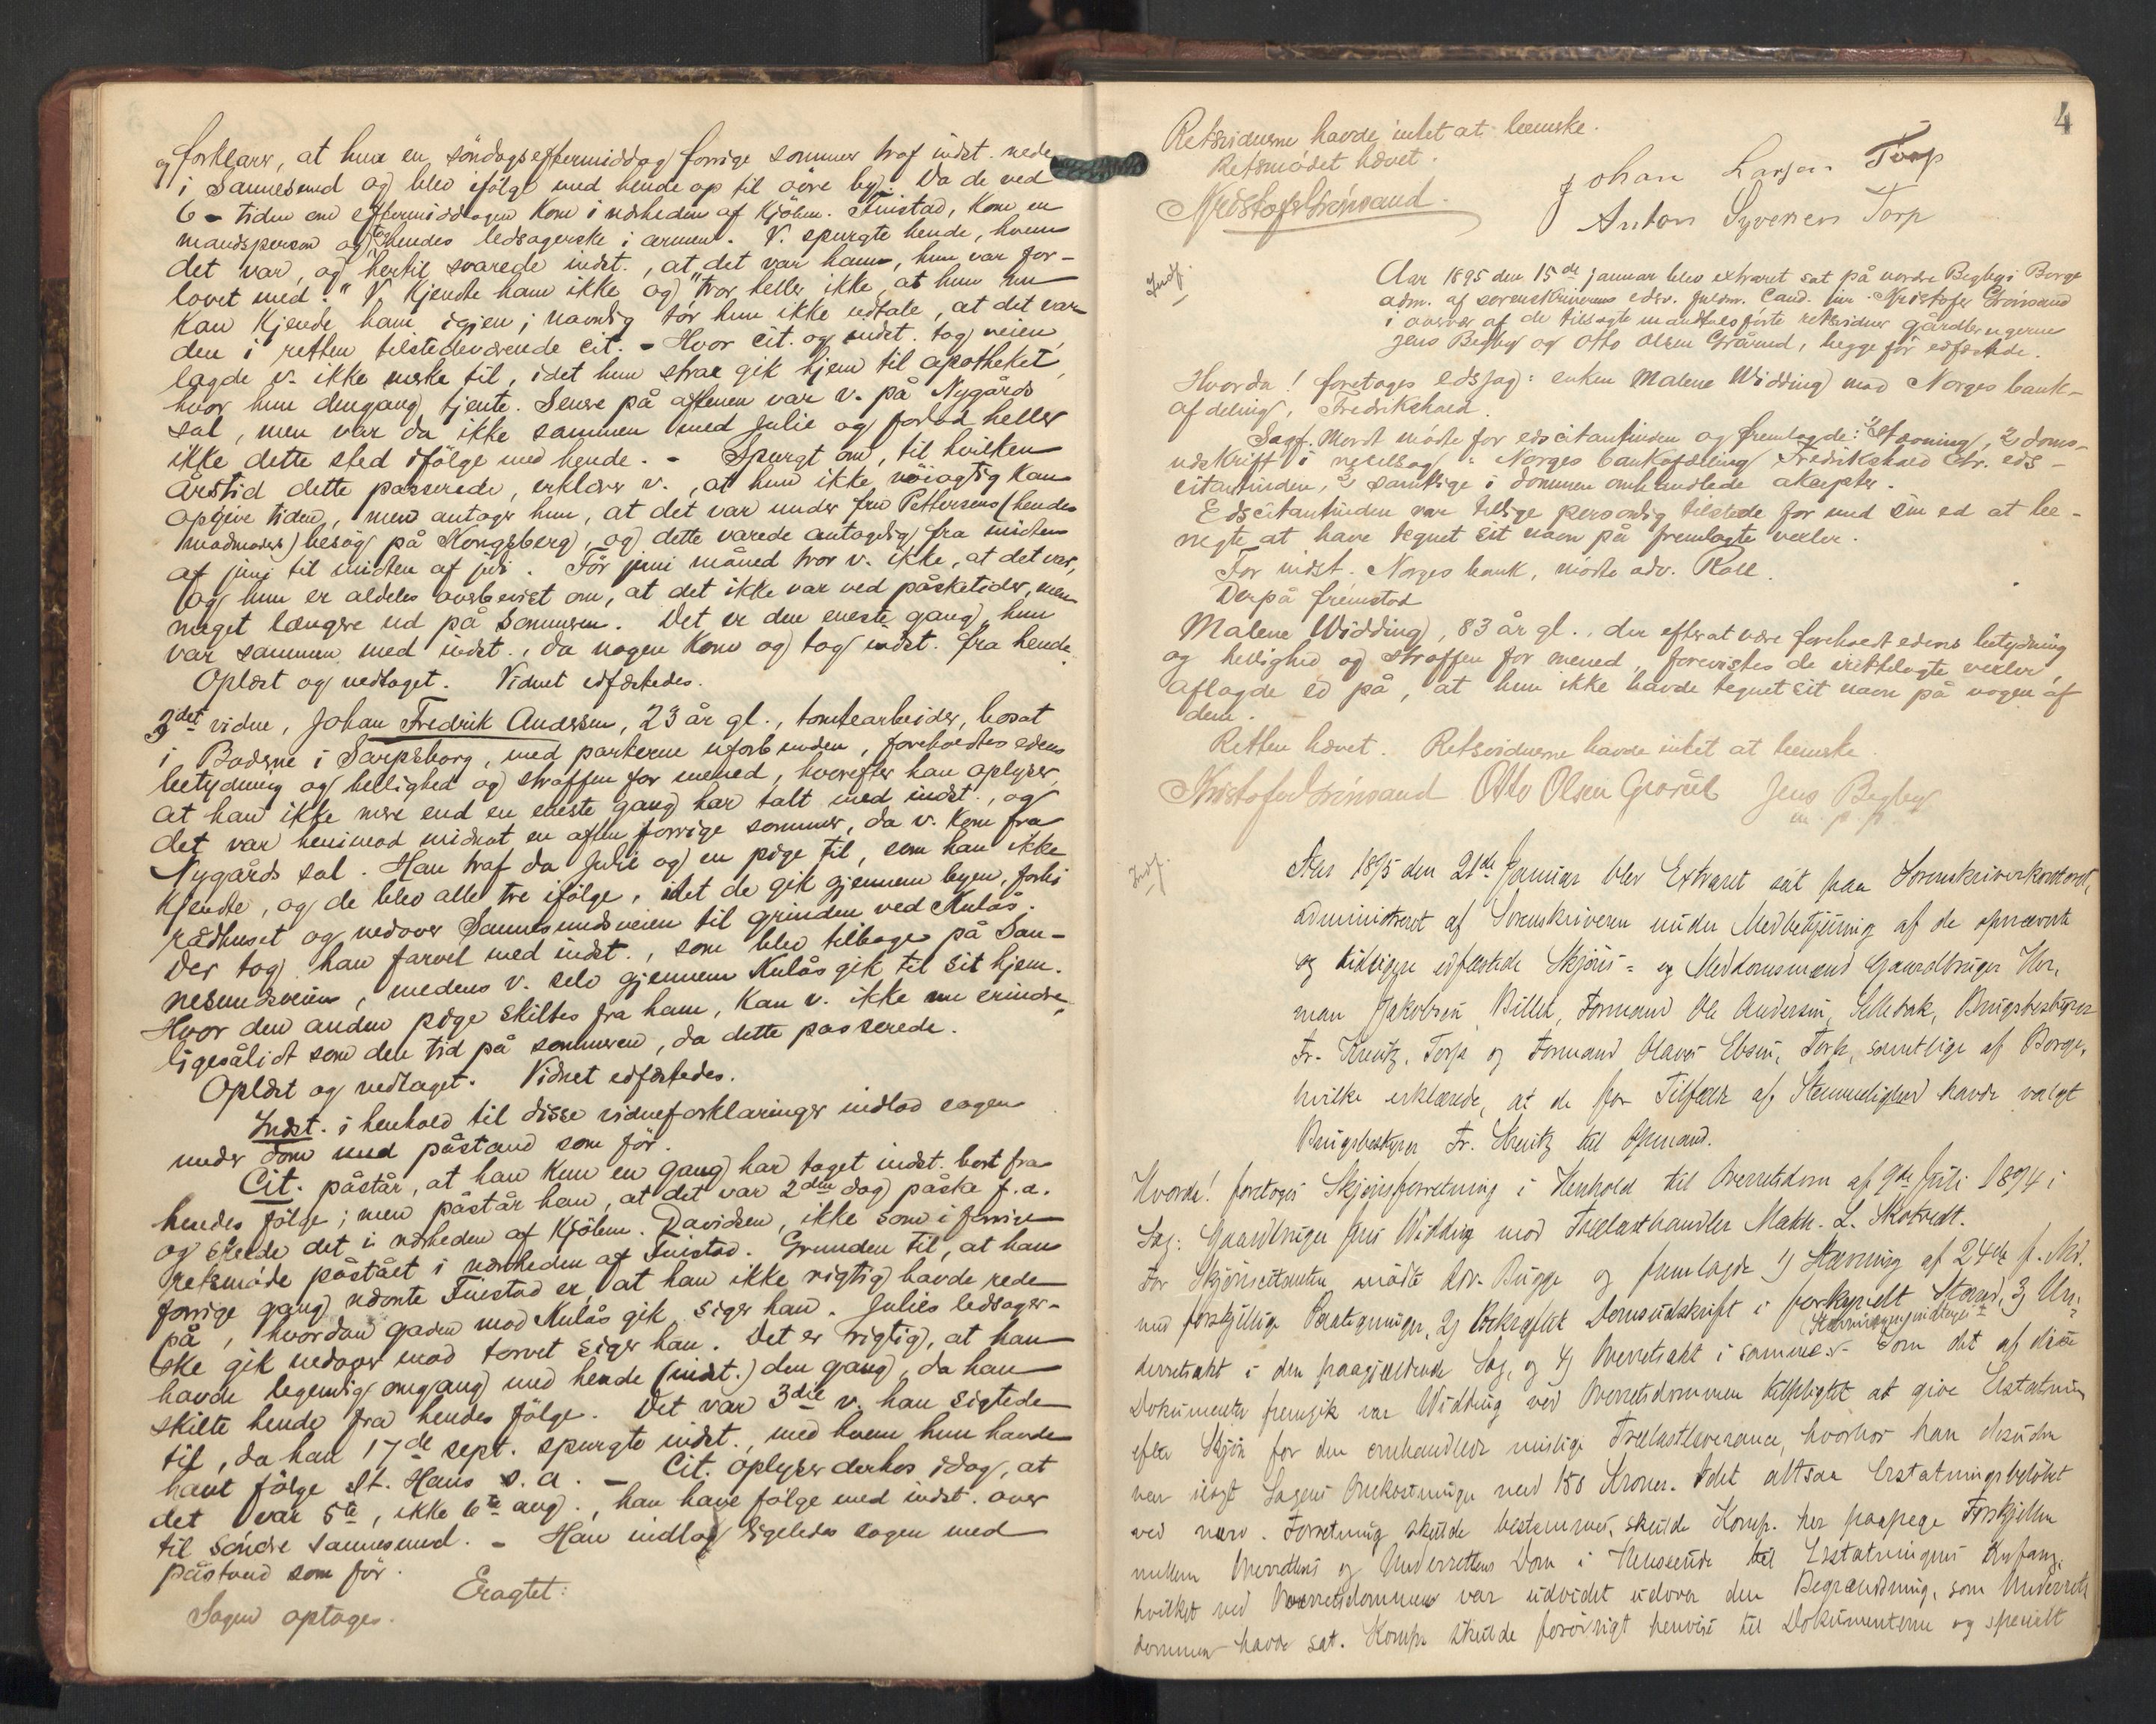 og forklarer, at hun en söndagseftermiddag forrige sommer traf indst. nede
i Sannesund og blev ifölge med hende op til övre by. Da de ved
6-tiden om eftermiddagen kom i nærheden af kjöbm. Fuistad, kom en
mandsperson og tog hendes ledsagerske i armen. V. spurgte hende, hvem
det var, og hertil svarede indst., at "det var ham, hun var for-
lovet med." V. kjendte ham ikke og tror heller ikke, at hun nu
kan kjende ham igjen; navnlig tör hun ikke udtale, at det var
den i retten tilstedeværende cit. - Hvor cit. og indst. tog veien,
lagde v. ikke merke til, idet hun strax gik hjem til apotheket,
hvor hun dengang tjente. Senere på aftenen var v. på Nygårds
sal, men var da ikke sammen med Julie og forlod heller
ikke dette sted ifölge med hende. - Spurgt om, til hvilken
årstid dette passerede, erklærer v., at hun ikke nöiagtig kan
opgive tiden, men antager hun, at det var under fru Pettersens (hendes
madmoders) besög på Kongsberg, og dette varede antagelig fra midten
af juni til midten af juli. För juni måned tror v. ikke, at det var,
og hun er aldeles overbevist om, at det ikke var ved påsketider, men
meget længere ud på sommeren. Det er den eneste gang, hun
var sammen med indst., da nogen kom og tog indst. fra hende.
Oplæst og vedtaget. Vidnet edfæstedes.
3det vidne, Johan Fredrik Andersen, 23 år gl., tomtearbeider, bosat
i Boderne i Sarpsborg, med parterne uforbunden, foreholdtes edens
betydning og hellighed og straffen for mened, hvorefter han oplyser,
at han ikke mere end en eneste gang har talt med indst., og
det var henimod midnat en aften forrige sommer, da v. kom fra
Nygårds sal. Han traf da Julie og en pige til, som han ikke
kjendte, og de blev alle tre ifölge, idet de gik gjennem byen, forbi
rådhuset og nedover Sannesundsveien til grinden ved Kulås.
Der tog han farvel med indst., som blev tilbage på San-
nesundsveien, medens v. selv gjennem Kulås gik til sit hjem.
Hvor den anden pige skiltes fra ham, kan v. ikke nu erindre,
ligesålidt som den tid på sommeren, da dette passerede.
Oplæst og vedtaget. Vidnet edfæstedes.
Indst. i henhold til disse vidneforklaringer indlod sagen
under dom med påstand som för.
Cit. påstår, at han kun en gang har taget indst. bort fra
hendes fölge; men påstår han, at det var 2den dag påske f.a.
og skede det i nærheden af kjöbm. Davidsen, ikke som i forrige
retsmöde påstået i nærheden af Fuistad. Grunden til, at han
forrige gang nævnte Fuistad er, at han ikke rigtig havde rede
på, hvordan gaden mod Kulås gik, siger han. Julies ledsager-
ske gik nedover mod torvet siger han. Det er rigtig, at han
havde legemlig omgang med hende (indst.) den gang, da han
skilte hende fra hendes fölge. Det var 3die v. han sigtede
til, da han 17de sept. spurgte indst., med hvem hun havde
havt fölge St. Hans s.a. - Cit. oplyser derhos idag, at
det var 5te, ikke 6te aug., han havde fölge med indst. over
til söndre Sannesund. - Han indlod ligeledes sagen med
påstand som för.
Eragtet:
Sagen optages.
4
Retsvidnerne havde intet at bemerke.
Retsmödet hævet.
Kristofer Grönsand
Johan Larsen Torp
Anton Syversen Torp
Indf.
Aar 1895 den 15de januar blev extraret sat på nordre Begby i Borge
adm. af sorenskriverens edsv. fuldm. cand. jur. Kristofer Grönsand
i overvær af de tilsagte mandtalsförte retsvidner gårdbrugerne
Jens Begby og Otto Olsen Grålum, begge för edfæstede.
Hvorda! foretoges edssag: enken Malene Widding mod Norges bank-
afdeling, Fredrikshald.
Sagf. Mordt mödte for edscitantinden og fremlagde: 1) Stævning, 2 doms-
udskrift i vexelsag: Norges bankafdeling Fredrikshald ctr. eds-
citantinden, 3 samtlige i dommen omhandlede akcepter.
Edscitantinden var tillige personlig tilstede for med sin ed at be-
negte at have tegnet sit navn på fremlagte vexler.
For indst. Norges bank, mödte adv. Roll.
Derpå fremstod
Malene Widding, 83 år gl., der efter at være foreholdt edens betydning
og hellighed og straffen for mened, forevistes de irettelagte vexler,
aflagde ed på, at hun ikke havde tegnet sit navn på nogen af
dem.
Retten hævet. Retsvidnerne havde intet at bemerke.
Kristofer Grönsand Otto Olsen Graaul Jens Begby
m. p. p.
Indf.
Aar 1895 den 21de Januar blev Extraret sat paa Sorenskriverkontoret,
administreret af Sorenskriveren under Medbetjening af de opnævnte
og tidligere edfæstede Skjöns- og Meddomsmænd Gaardbruger Her-
man Jakobsen Billet, Formand Ole Andersen, Sellebak, Brugsbestyrer
Fr. Kreutz, Torp og Formand Olaves Ebsen, Torp, samtlige af Borge,
hvilke erklærede, at de for Tilfælde af Stemmelighed havde valgt
Brugsbestyrer Fr. Kreutz til Opmand.
Hvorda! foretoges Skjönsforretning i Henhold til Overretsdom af 9de Juli 1894 i
Sag: Gaardbruger Jens Widding mod Trælasthandler Math. L. Skotvedt.
For Skjönscitanten mödte Adv. Bugge og fremlagde 1) Stævning af 24de f. Md.
med forskjellige Paategninger, 2) Bekræftet Domsudskrift i forkyndt Stand, 3) Un-
derretsakt i den paagjældende Sag, og 4) Overretsakt i samme. Som det af disse
Dokumenter fremgik var Widding ved Overretsdommen tilpligtet at give Erstatning
efter Skjön for den omhandlede mislige Trælastleverance, hvorhos han desuden
var ilagt Sagens Omkostninger med 150 Kroner. Idet altsaa Erstatningsbelöbet
ved nærv. Forretning skulde bestemmes, skulde Komp. her paapege Forskjellen
mellem Overrettens og Underrettens Dom i Henseende til Erstatningens Omfang,
hvilket ved Overretsdommen var udvidet udover den Begrændsning, som Underrets-
dommen havde sat. Komp. skulde forövrigt henvise til Dokumenterne og specielt